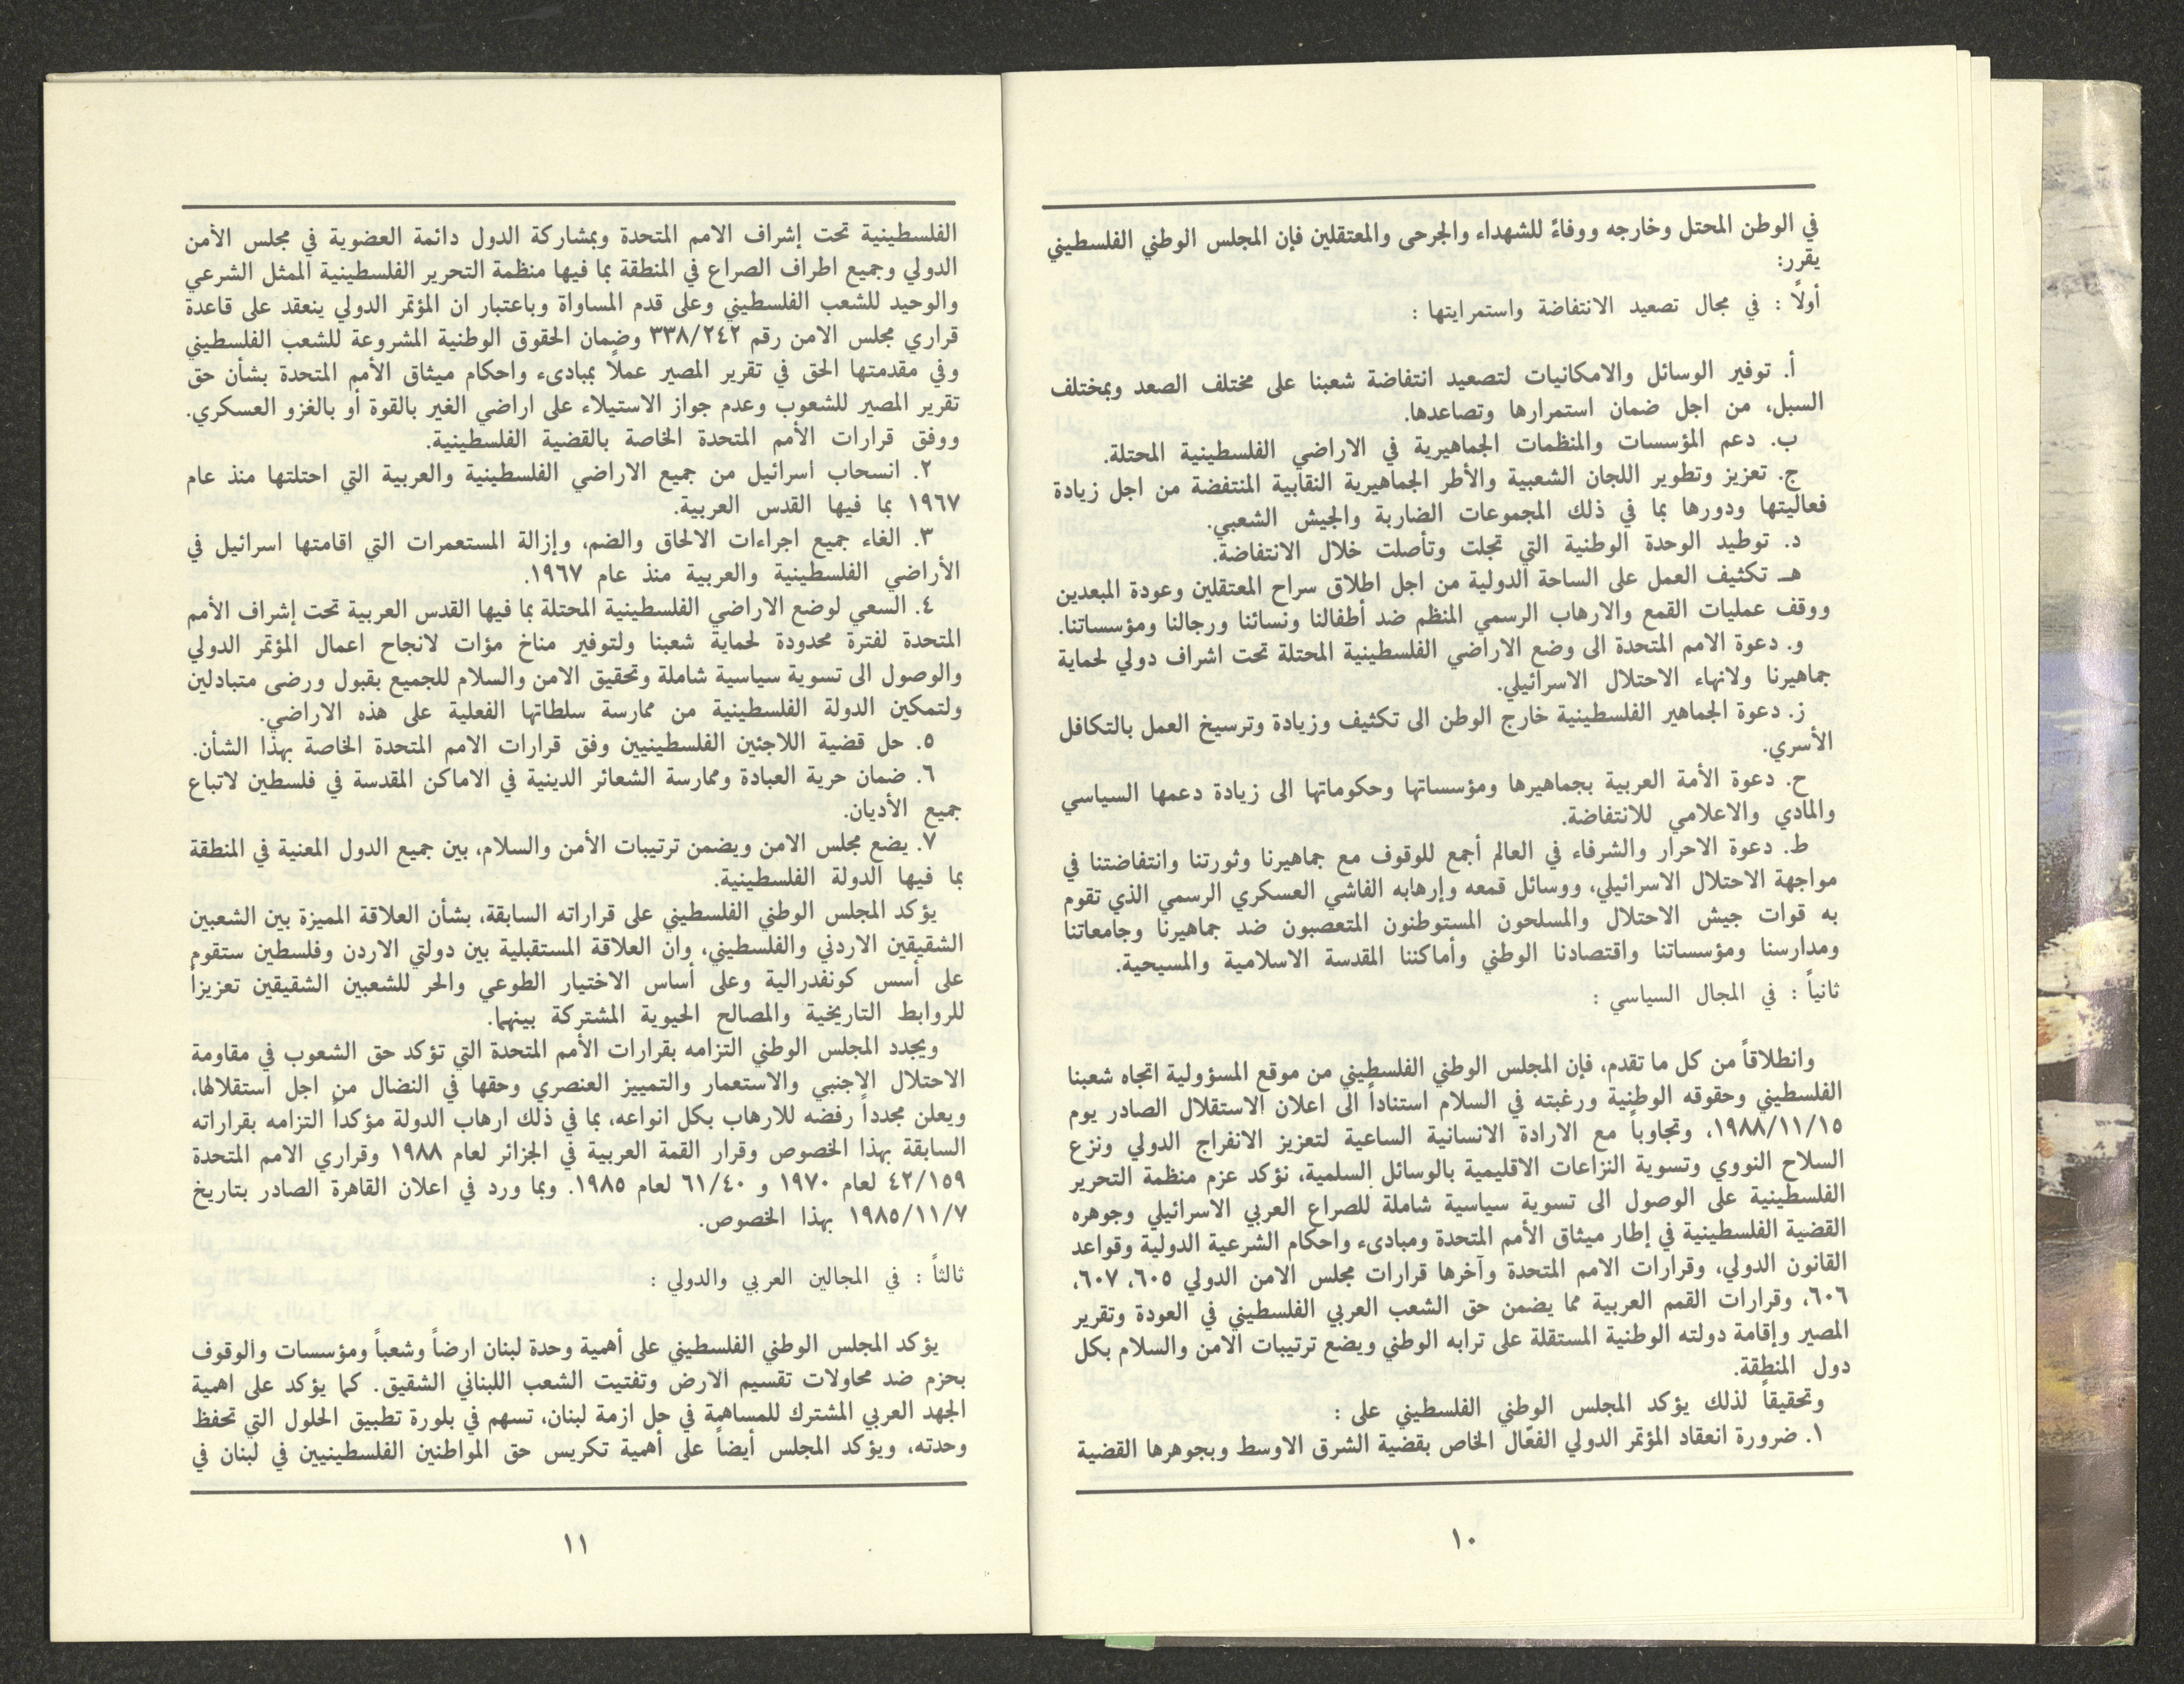 في الوطن المحتل وخارجه ووفاءً للشهداء والجرحى والمعتقلين فإن المجلس الوطني الفلسطيني
يقرر:
أولاً : في مجال تصعيد الانتفاضة واستمراريتها :
أ. توفير الوسائل والامكانيات لتصعيد انتفاضة شعبنا على مختلف الصعد وبمختلف
السبل، من اجل ضمان استمرارها وتصاعدها.
ب. دعم المؤسسات والمنظمات الجماهيرية في الاراضي الفلسطينية المحتلة.
ج. تعزيز وتطوير اللجان الشعبية والأطر الجماهيرية النقابية المنتفضة من اجل زيادة
فعاليتها ودورها بما في ذلك المجموعات الضاربة والجيش الشعبي.
د. توطيد الوحدة الوطنية التي تجلت وتأصلت خلال الانتفاضة.
هـ تكثيف العمل على الساحة الدولية من اجل اطلاق سراح المعتقلين وعودة المبعدين
ووقف عمليات القمع والارهاب الرسمي المنظم ضد أطفالنا ونسائنا ورجالنا ومؤسساتنا.
و. دعوة الامم المتحدة الى وضع الاراضي الفلسطينية المحتلة تحت اشراف دولي لحماية
جماهيرنا ولانهاء الاحتلال الاسرائيلي.
ز. دعوة الجماهير الفلسطينية خارج الوطن الى تكثيف وزيادة وترسيخ العمل بالتكافل
الأسري.
ح. دعوة الأمة العربية بجماهيرها ومؤسساتها وحكوماتها الى زيادة دعمها السياسي
والمادي والاعلامي للانتفاضة.
ط. دعوة الاحرار والشرفاء في العالم أجمع للوقوف مع جماهيرنا وثورتنا وانتفاضتنا في
مواجهة الاحتلال الاسرائيلي، ووسائل قمعه وإرهابه الفاشي العسكري الرسمي الذي تقوم
به قوات جيش الاحتلال والمسلحون المستوطنون المتعصبون ضد جماهيرنا وجامعاتنا
ومدارسنا ومؤسساتنا واقتصادنا الوطني وأماكننا المقدسة الاسلامية والمسيحية.
ثانياً : في المجال السياسي :
وانطلاقاً من كل ما تقدم، فإن المجلس الوطني الفلسطيني من موقع المسؤولية اتجاه شعبنا
الفلسطيني وحقوقه الوطنية ورغبته في السلام استناداً الى اعلان الاستقلال الصادر يوم
١٩٨٨/١١/١٥، وتجاوباً مع الارادة الانسانية الساعية لتعزيز الانفراج الدولي ونزع
السلاح النووي وتسوية النزاعات الاقليمية بالوسائل السلمية، نؤكد عزم منظمة التحرير
الفلسطينية على الوصول الى تسوية سياسية شاملة للصراع العربي الاسرائيلي وجوهره
القضية الفلسطينية في إطار ميثاق الأمم المتحدة ومبادىء واحكام الشرعية الدولية وقواعد
القانون الدولي، وقرارات الامم المتحدة وآخرها قرارات مجلس الامن الدولي ٦٠٥، ٦٠٧،
٦٠٦، وقرارات القمم العربية مما يضمن حق الشعب العربي الفلسطيني في العودة وتقرير
المصير وإقامة دولته الوطنية المستقلة على ترابه الوطني ويضع ترتيبات الامن والسلام بكل
دول المنطقة.
وتحقيقاً لذلك يؤكد المجلس الوطني الفلسطيني على :
١. ضرورة انعقاد المؤتمر الدولي الفعّال الخاص بقضية الشرق الاوسط وبجوهرها القضية
١٠
الفلسطينية تحت إشراف الامم المتحدة وبمشاركة الدول دائمة العضوية في مجلس الأمن
الدولي وجميع اطراف الصراع في المنطقة بما فيها منظمة التحرير الفلسطينية الممثل الشرعي
والوحيد للشعب الفلسطيني وعلى قدم المساواة وباعتبار ان المؤتمر الدولي ينعقد على قاعدة
قراري مجلس الامن رقم ٣٣٨/٢٤٢ وضمان الحقوق الوطنية المشروعة للشعب الفلسطيني
وفي مقدمتها الحق في تقرير المصير عملاً بمبادىء واحكام ميثاق الأمم المتحدة بشأن حق
تقرير المصير للشعوب وعدم جواز الاستيلاء على اراضي الغير بالقوة أو بالغزو العسكري.
ووفق قرارات الأمم المتحدة الخاصة بالقضية الفلسطينية.
٢. انسحاب اسرائيل من جميع الاراضي الفلسطينية والعربية التي احتلتها منذ عام
١٩٦٧ بما فيها القدس العربية.
٣. الغاء جميع اجراءات الالحاق والضم، وإزالة المستعمرات التي اقامتها اسرائيل في
الأراضي الفلسطينية والعربية منذ عام ١٩٦٧.
٤. السعي لوضع الاراضي الفلسطينية المحتلة بما فيها القدس العربية تحت إشراف الأمم
المتحدة لفترة محدودة لحماية شعبنا ولتوفير مناخ مؤات لانجاح اعمال المؤتمر الدولي
والوصول الى تسوية سياسية شاملة وتحقيق الامن والسلام للجميع بقبول ورضى متبادلين
ولتمكين الدولة الفلسطينية من ممارسة سلطاتها الفعلية على هذه الاراضي.
٥. حل قضية اللاجئين الفلسطينيين وفق قرارات الامم المتحدة الخاصة بهذا الشأن.
٦. ضمان حرية العبادة وممارسة الشعائر الدينية في الاماكن المقدسة في فلسطين لاتباع
جميع الأديان.
٧. يضع مجلس الامن ويضمن ترتيبات الأمن والسلام، بين جميع الدول المعنية في المنطقة
بما فيها الدولة الفلسطينية.
يؤكد المجلس الوطني الفلسطيني على قراراته السابقة، بشأن العلاقة المميزة بين الشعبين
الشقيقين الاردني والفلسطيني، وان العلاقة المستقبلية بين دولتي الاردن وفلسطين ستقوم
على أسس كونفدرالية وعلى أساس الاختيار الطوعي والحر للشعبين الشقيقين تعزيزاً
للروابط التاريخية والمصالح الحيوية المشتركة بينهما.
ويجدد المجلس الوطني التزامه بقرارات الأمم المتحدة التي تؤكد حق الشعوب في مقاومة
الاحتلال الاجنبي والاستعمار والتمييز العنصري وحقها في النضال من اجل استقلالها،
ويعلن مجدداً رفضه للارهاب بكل انواعه، بما في ذلك ارهاب الدولة مؤكداً التزامه بقراراته
السابقة بهذا الخصوص وقرار القمة العربية في الجزائر لعام ١٩٨٨ وقراري الامم المتحدة
٤٢/١٥٩ لعام ١٩٧٠ و ٦١/٤٠ لعام ١٩٨٥. وبما ورد في اعلان القاهرة الصادر بتاريخ
١٩٨٥/١١/٧ بهذا الخصوص.
ثالثاً : في المجالين العربي والدولي :
يؤكد المجلس الوطني الفلسطيني على أهمية وحدة لبنان ارضاً وشعباً ومؤسسات والوقوف
بحزم ضد محاولات تقسيم الارض وتفتيت الشعب اللبناني الشقيق. كما يؤكد على اهمية
الجهد العربي المشترك للمساهمة في حل ازمة لبنان، تسهم في بلورة تطبيق الحلول التي تحفظ
وحدته، ويؤكد المجلس أيضاً على أهمية تكريس حق المواطنين الفلسطينيين في لبنان في
١١